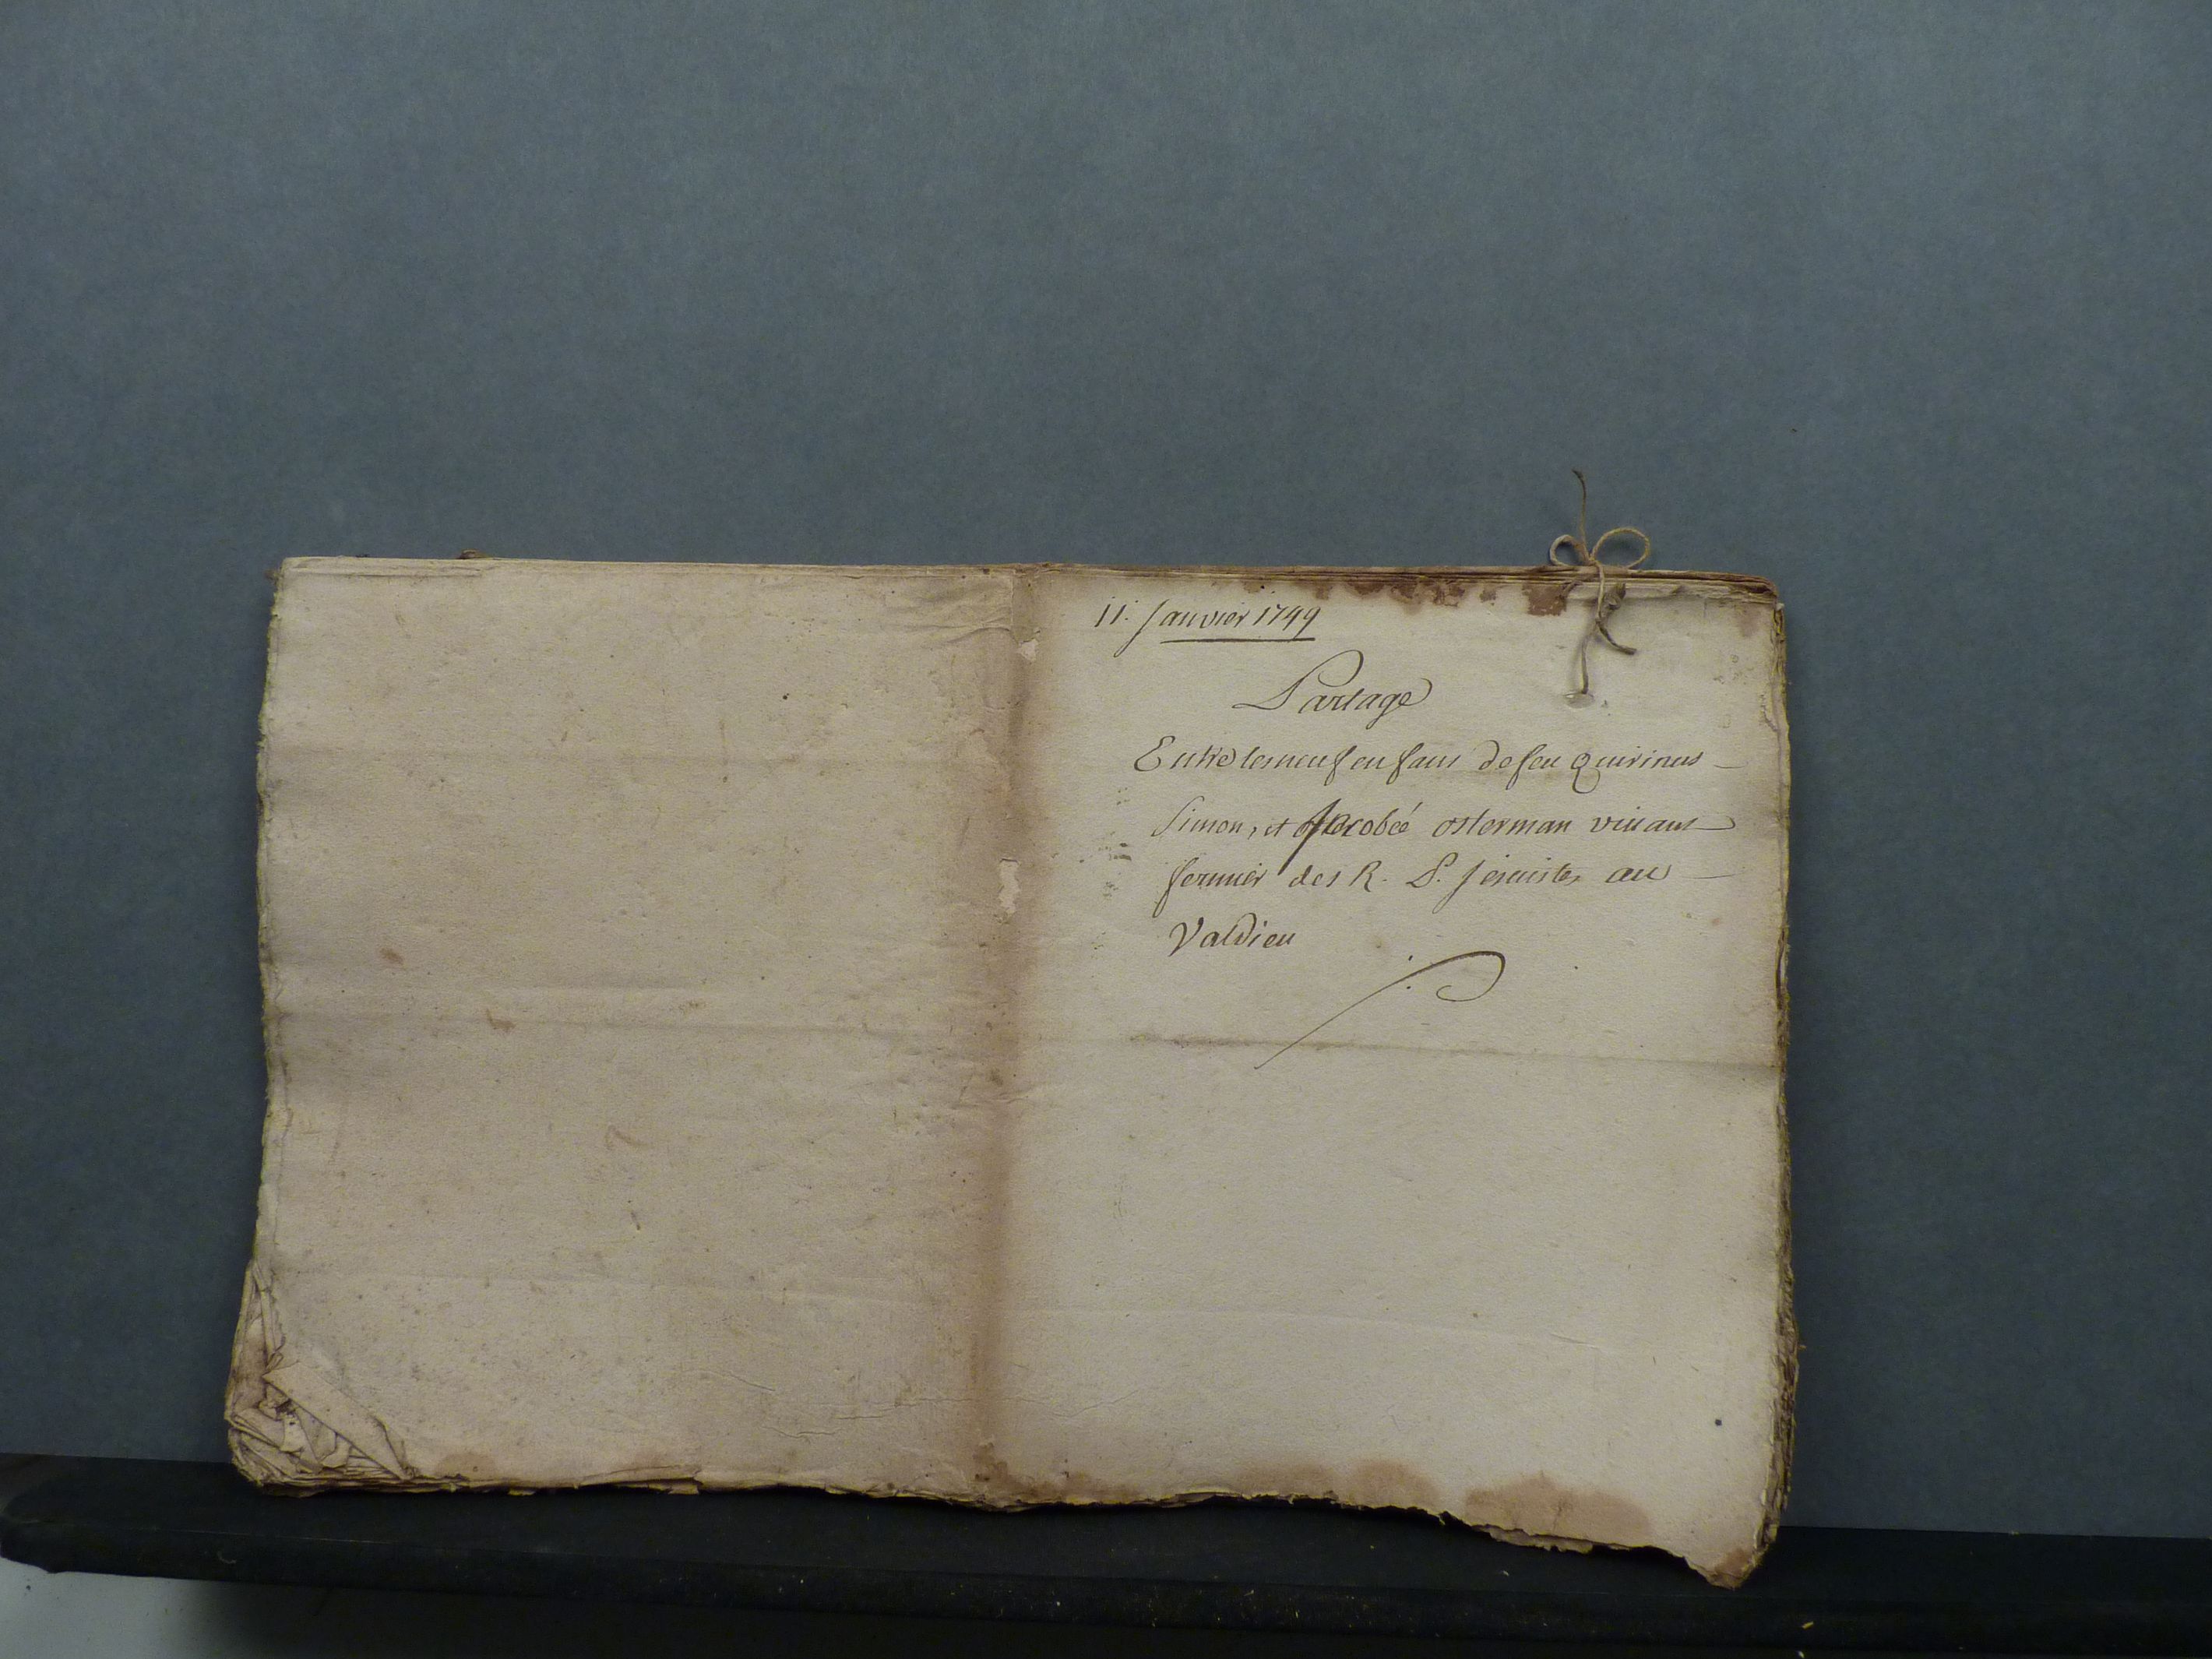 11. Janvier 1749
Partage
Entre les neuf enfans de feu Quirinus
Simon, et Jacobée osterman vivans
fermier des R. P. Jesuistes au
Valdieu